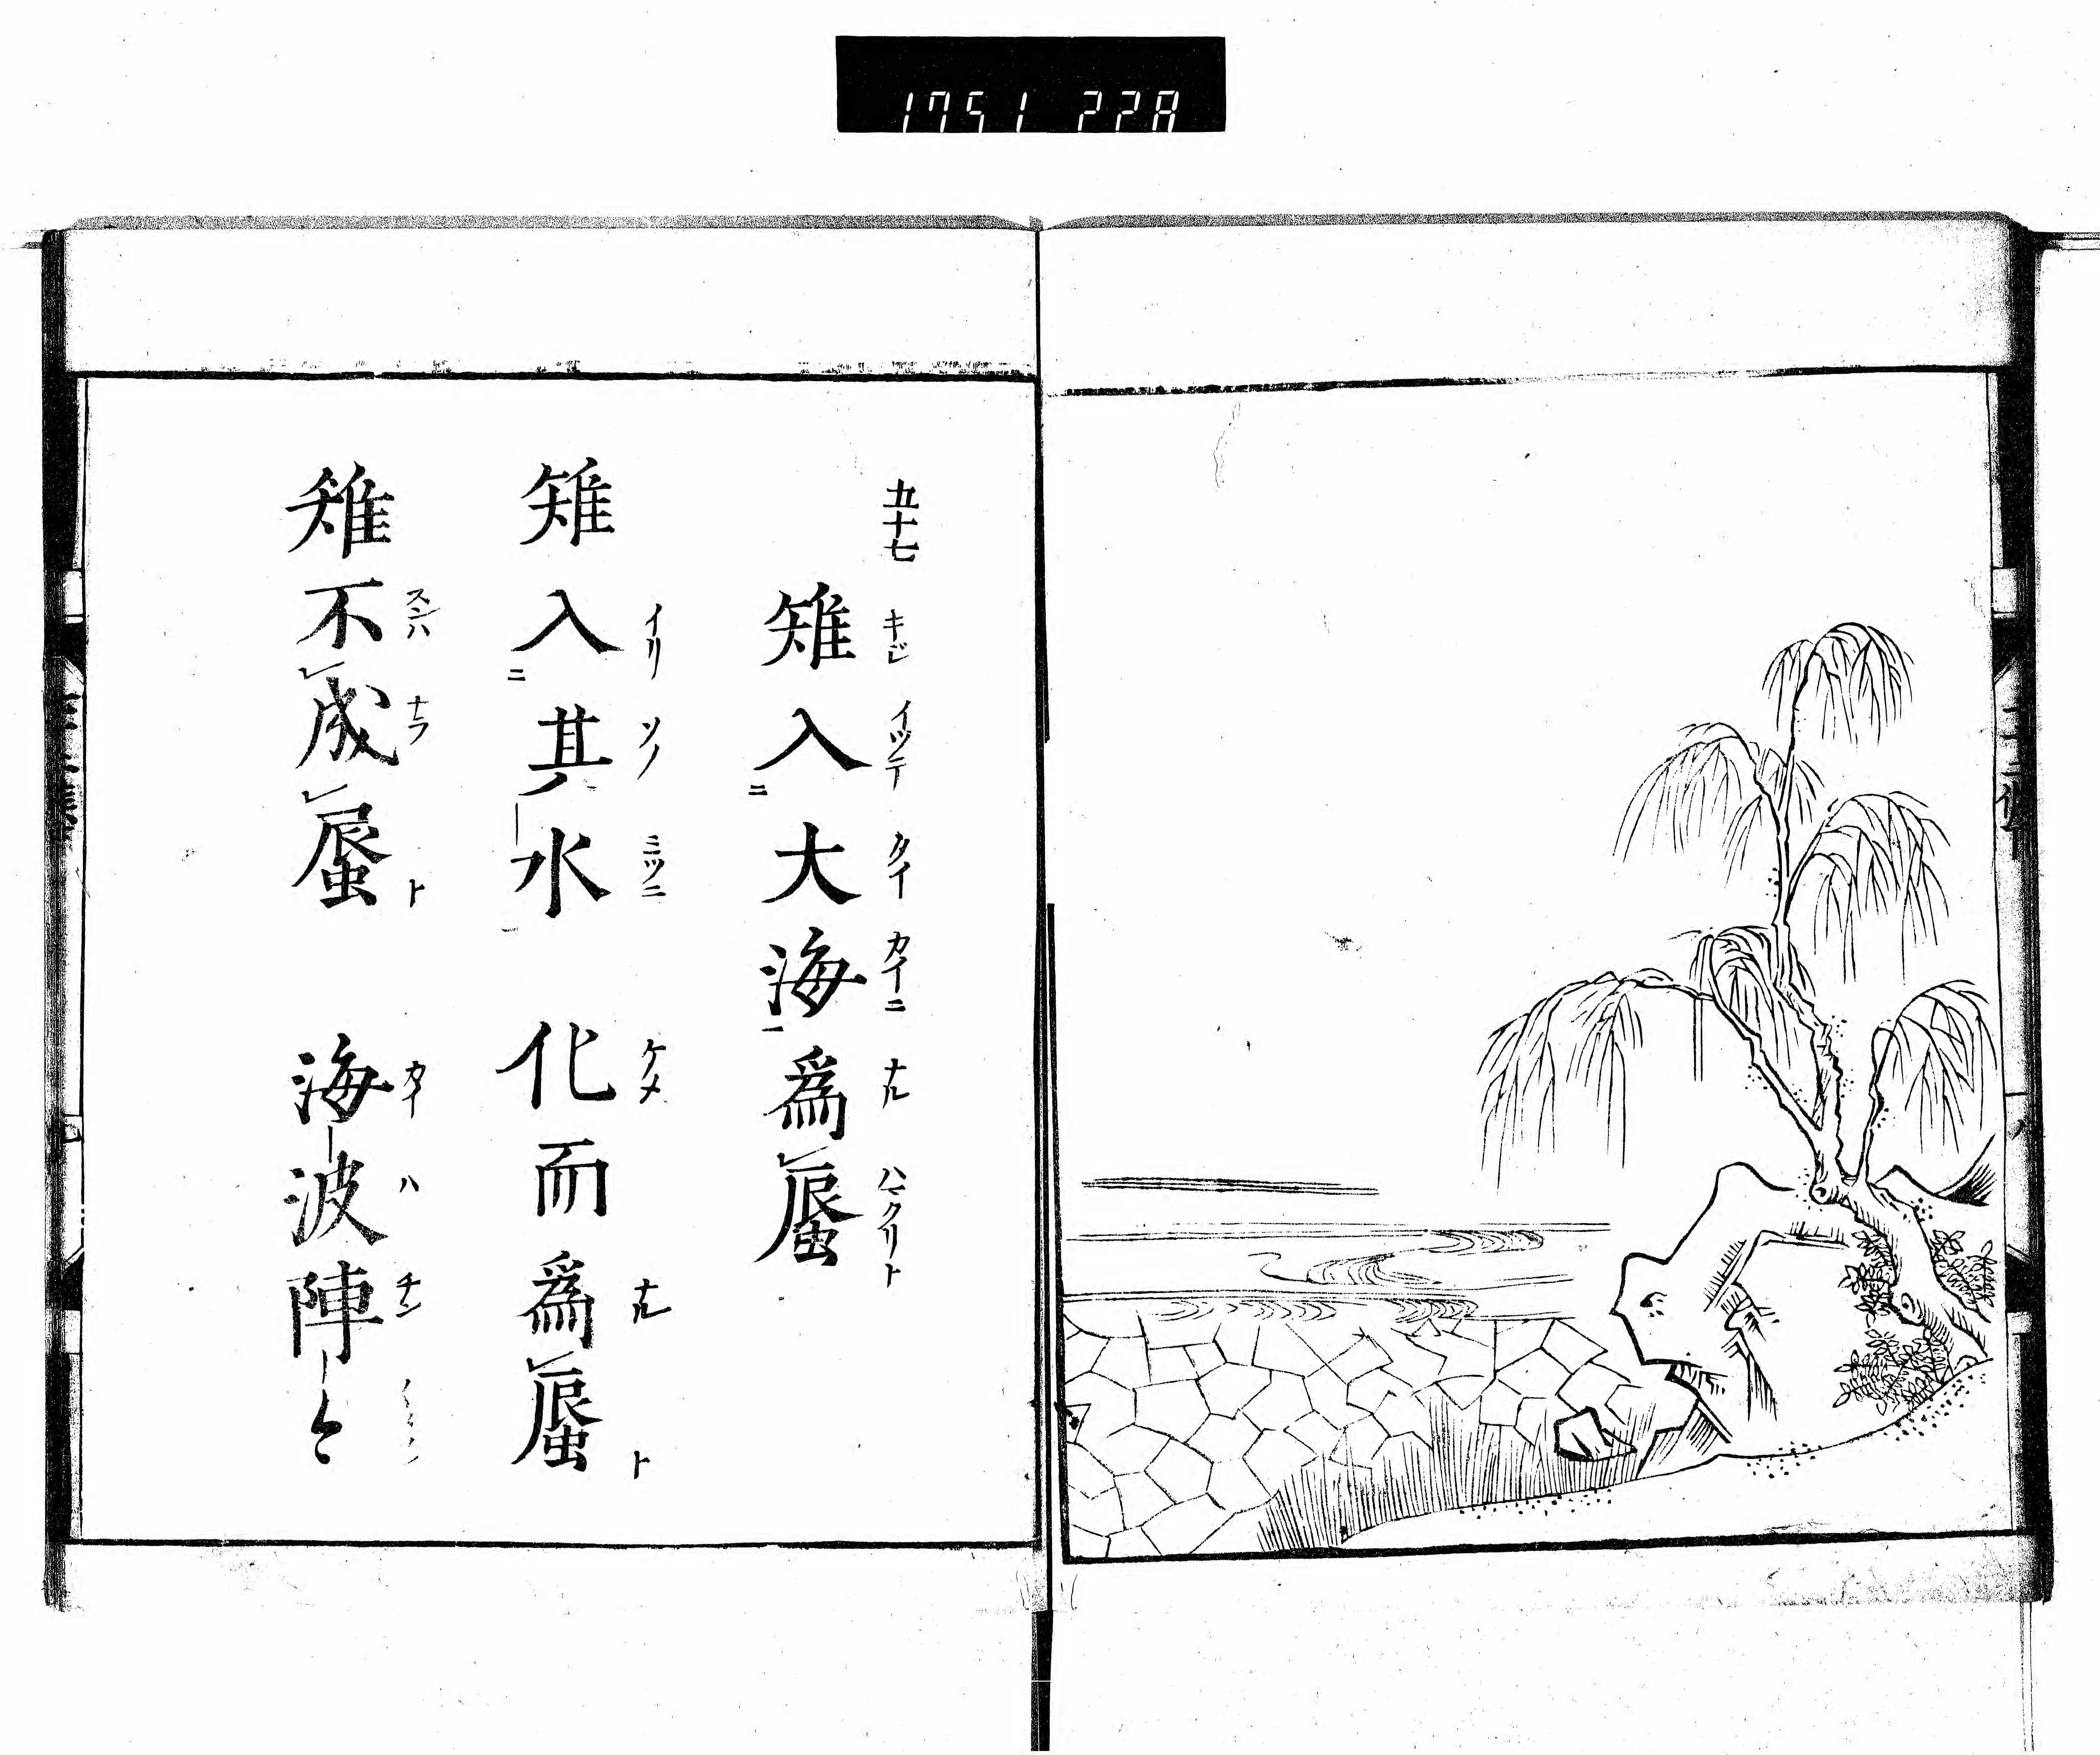 1751 228
五十七
雉入大海爲蜃
キジ イツテ タイ カイニ ナル ハマクリト
雉入其水 化而爲蜃
イリ ソノ ミツニ ケメ ナル ト
雉不成蜃 海波陣々
スンハ ナラ ト カイ ハ チン